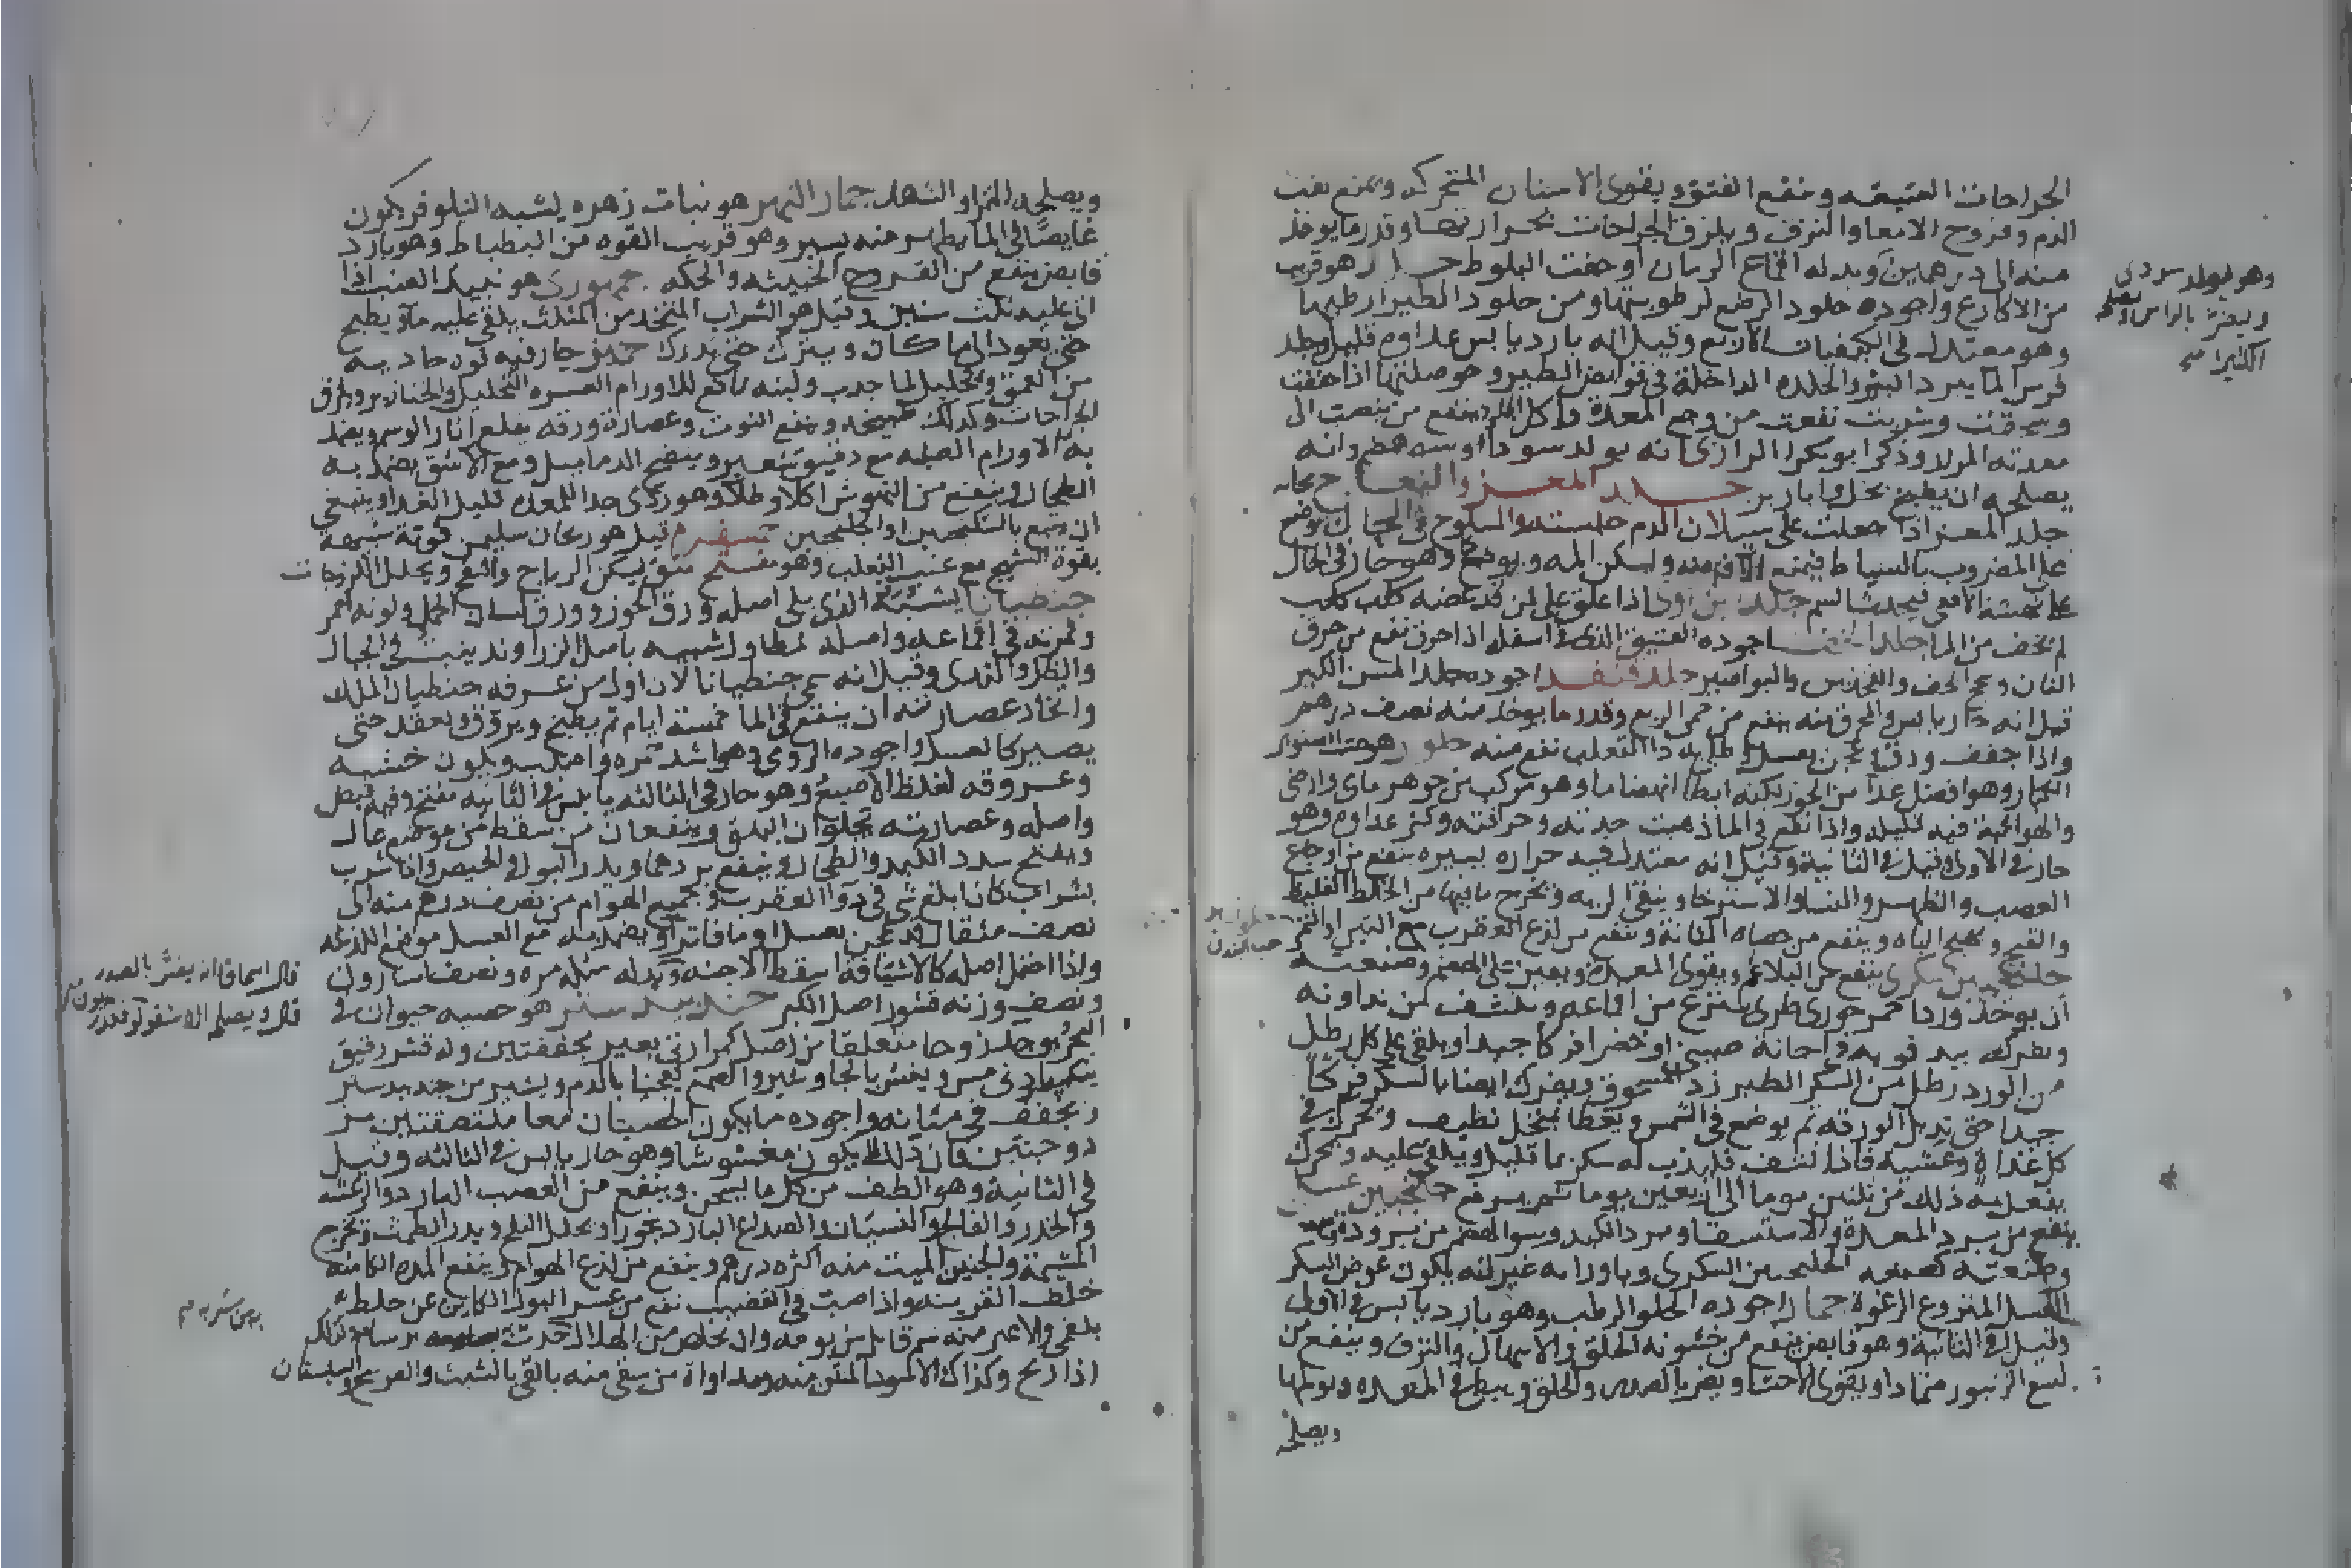 الجراحات العتيقه وينفع الفتق ويقوى الاسنان المتحركه ويمنع نفث
الدم وقروح الامعا والنزف ويلزق الجراحات بحرارتها وقدر ما يوخذ
منه الى درهمين وبدله اقماع الرمان او جفت البلوط جلد هو قريب
من الاكارع واجوده جلود الرضع لرطوبتها ومن جلود الطير ارطبها
وهو معتدل فى الكيفيات الاربع وقيل انه بارد يابس غداوه قليل
والجلده الداخلة فى قوانص الطير وحوصلتها اذا جففت
وسحقت وشربت نفعت من وجع المعدة واكل الجلد ينفع من ينصب الى
معدته المرار وذكر ابو بكر الرازى انه يولد سودا وانه
يصلحه ان يطبخ بخل وابازير جلد المعز والنعاج
جلد المعز اذا جعلت على سيلان الدم حبسته والمسلوخ فى الحال يوضع
على المضروب بالسياط فيمنع الافة منه ويسكن المه وهو حار فى الحال
على نهشة الافعى فيجذب السم جلد ابن اوى اذا علق على من قد عضه كلب كلب
لم يخف من الما جلد الخف اجوده العتيق الذى فى اسفله اذا احرق نفع من حرق
النار وسحج الخف والفخذين والبواسير جلد قنفد اجوده جلد المسن الكبير
قيل انه حار يابس والمحرق منه ينفع من حمى الربع وقدر ما يوخذ منه نصف درهم
واذا جفف ودق وعجن بعسل وطلى به دا الثعلب نفع منه جلوز هو حب الصنوبر
الكبار وهو افضل غدا من الجوز لكنه ابطا انهضاما وهو مركب من جوهر ماى وارضى
والهوائية فيه قليله واذا نقع فى الما ذهبت حدته وحرافته وكثر غداوه وهو
حار فى الاولى وقيل فى الثانية وقيل انه معتدل فيه حراره يسيره ينفع من اوجاع
العصب والظهر والنسا والاسترخا وينقى الريه ويخرج ما فيها من الخلط الغليظ
والقيح ويهيج الباه وينفع من حصاه المثانة وينفع من لذع العقرب مع التين او التمر
جلنجبين سكرى ينفع من البلاغم ويقوى المعدة ويعين على الهضم وصنعته
ان يوخذ وردا احمر جورى طرى ينزع من اقماعه وينشف من نداوته
ويفرك بيد قويه فى اجانة صينى او خضرا فركا جيدا ويلقى على كل رطل
من الورد رطل من السكر الطبرزد المسحوق ويفرك ايضا بالسكر فركا
جيدا حتى تذبل الورقه ثم يوضع فى الشمس ويغطا بمنخل نظيف ويحرك فى
كل غداة وعشيه فاذا نشف فليذب له سكر بما قليل ويلقى عليه ويحرك
يفعل به ذلك من ثلثين يوما الى اربعين يوما ثم يرفع جلنجبين عسلى
ينفع من برد المعدة والاستسقا وبرد الكبد وسو الهضم من برودة
وصنعته كصنعه الجلنجبين السكرى وباوزانه غير انه يكون عوض السكر
العسل المنزوع الرغوة جمار اجوده الحلو الرطب وهو بارد يابس فى الاولى
وقيل فى الثانية وهو قابض ينفع من خشونه الحلق والاسهال والنزف وينفع من
لسع الزنبور ضمادا ويقوى الاحشا ويضر بالصدر والحلق ويبطى فى المعده ويولمها
ويصلحه
وهو يولد
ويضر بالراس ويصلحه
الكثيرا
ويصلحه التمر او الشهد جمار النهر هو نبات زهره يشبه النيلوفر يكون
غايصا فى الما يظهر منه يسير وهو قريب القوه من البطباط وهو بارد
قابض ينفع من القروح الخبيثه والحكه جمهورى هو نبيذ العنب اذا
اتى عليه ثلث سنين وقيل هو الشراب المتخذ من المثلث يلقى عليه ما ويطبخ
حتى يعود الى ما كان ويترك حتى يدرك جميز حار فيه
من العمق وتحليل لما جذب ولبنه نافع للاورام العسره التحليل والخنازير ويلزق
الجراحات وكذلك طبيخه وعصارة ورقه يقلع اثار الوشم ويضمد
به الاورام الصلبه مع دقيق شعير وينضج الدماميل ومع الاشق يضمد به
الطحال وينفع من النهوش اكلا وطلا وهو ردى جدا للمعده قليل الغدا وينبغى
ان يتبع بالسكنجبين او الجلنجبين جمسفرم قيل هو ريحان سليمن قوته شبيهه
بقوة الشيح مع عنب الثعلب وهو مفتح يسكن الرياح والنفخ ويحلل اللزوجات
جنطيانا يشبه الذى يلى اصله ورق الجوز وورق لسان الحمل ولونه احمر
وثمرته فى اقماعه واصله مطاول شبيه باصل الزراوند ينبت فى الجبال
والظل والندى وقيل انه سمى جنطيانا لان اول من عرفه جنطيان الملك
واتخاذ عصارته ان ينقع فى الما خمسة ايام ثم يطبخ ويروق ويعقد حتى
يصير كالعسل واجوده الرومى وهو اشد حمره واصلب ويكون خشبه
وعروقه لغلظ الاصبع وهو حار فى الثالثه يابس فى الثانيه مفتح وفيه قبض
واصله وعصارته يجلوان البهق وينفعان من سقط من موضع عال
ويفتح سدد الكبد والطحال وينفع بردهما ويدر البول والحيض واذا شرب
بشراب كان ابلغ شى فى دوا العقرب وجميع الهوام من نصف درهم منه الى
نصف مثقال وقد عجن بعسل او ما فاتر او يضمد به مع العسل موضع اللذعه
واذا احتمل اصله كالاشيافة اسقط الاجنه وبدله مثله مره ونصف اسارون
ونصف وزنه قشور اصل الكبر جندبيدستر هو خصيه حيوان فى
البحر يوجد زوجا متعلقا من اصل كمرارتى بعير مجففتين وله قشر رقيق
ينكسر بادنى مس ويغش بالجاوشير والصمغ يعجنا بالدم ويسير من جندبيدستر
ويجفف فى مثانه واجوده ما يكون الخصيتان معا ملتصقتين من
فان ذلك لا يكون مغشوشا وهو حار يابس فى الثالثه وقيل
فى الثانية وهو الطف من كل ما يسخن وينفع من العصب البارد والرعشه
والخدر والفالج والنسيان والصداع البارد بخورا ويحلل النفخ ويدر الطمث ويخرج
المشيمة والجنين الميت منه اكثره درهم وينفع من لذع الهوام وينفع المده الكامنه
خلف القرينه واذا صبت فى القضيب نفع من عسر البول الكاين عن خلط
بلغمى والاغبر منه سم قاتل من يومه وان تخلص من الهلاك حدث برسام وكذلك
اذا زنخ وكذلك الاسود المنتن منه ومداواة من سقى منه بالقى بالشبث والعسل
قال اسحاق انه يضر بالصدر
قال ويصلحه الاسقولوقندريون